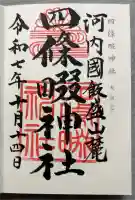 河内國飯盛山麓
四條畷神社
令和七年十月十四日
四條畷神社